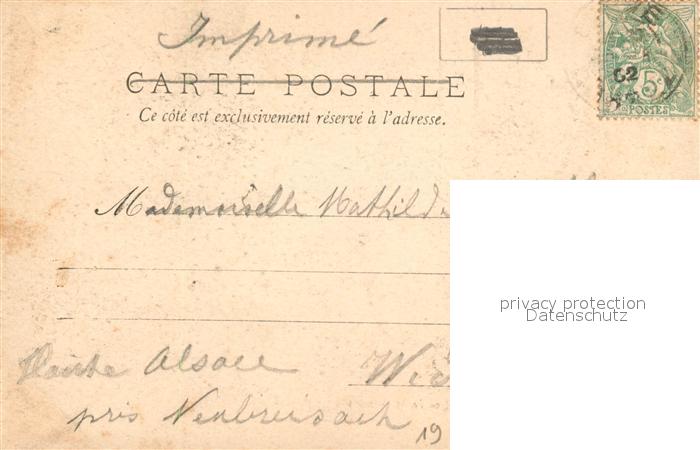 Imprimé
CARTE POSTALE
Ce côté est exclusivement réservé à l'adresse.
02
5c
POSTES
Mademoiselle Mathilde
privacy protection
Datenschutz
Haute Alsace
près Neubreisach
19